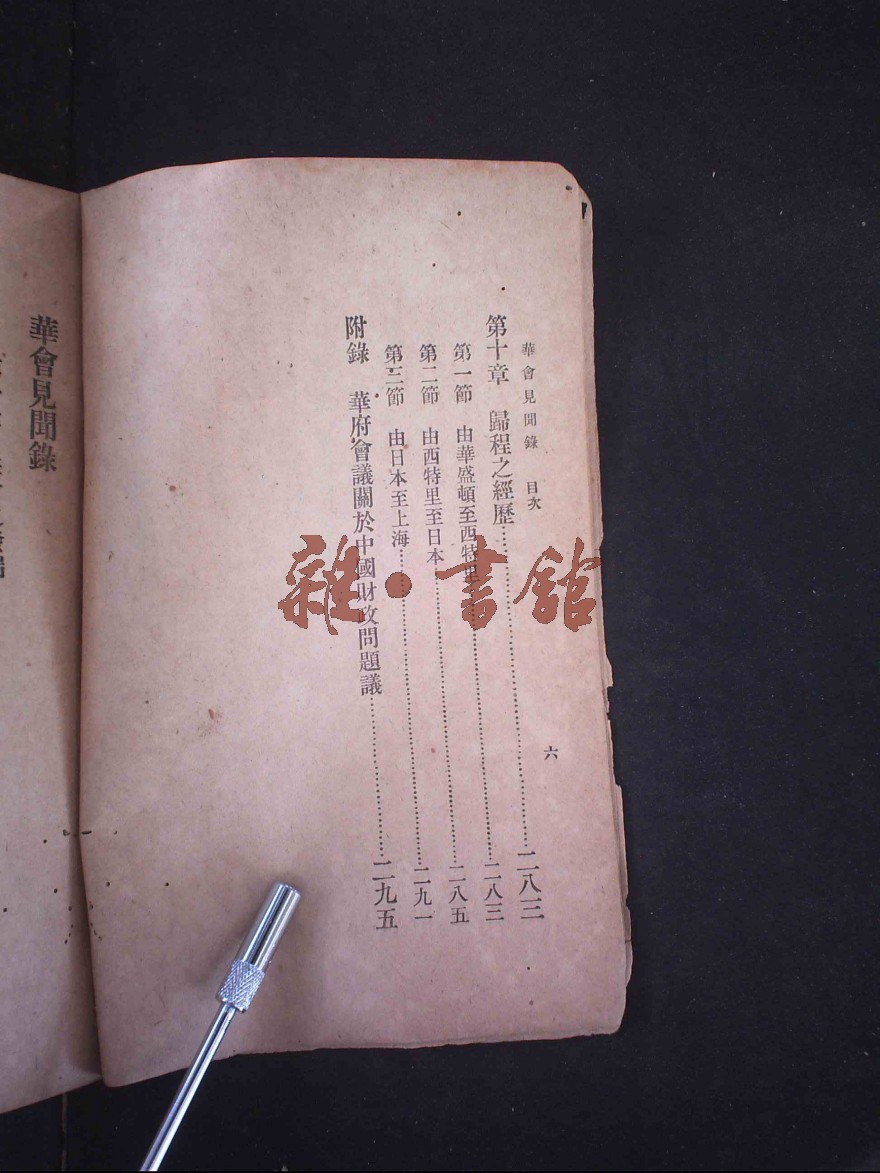 華會見聞錄 目次
六
第十章 歸程之經歷……二八三
第一節 由華盛頓至西特里……二八三
第二節 由西特里至日本……二八五
第三節 由日本至上海……二九一
附錄 華府會議關於中國財政問題議……二九五
華會見聞錄
雜·書館